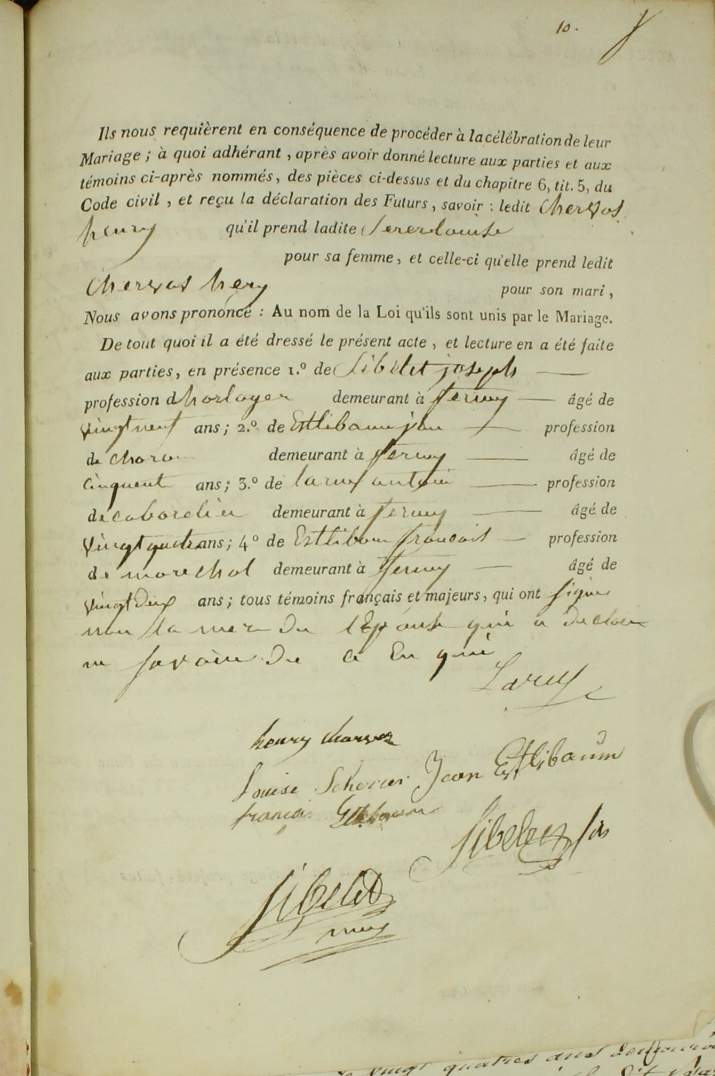 10.
Ils nous requièrent en conséquence de procéder à la célébration de leur
Mariage ; à quoi adhérant , après avoir donné lecture aux parties et aux
témoins ci-après nommés, des pièces ci-dessus et du chapitre 6, tit. 5, du
Code civil , et reçu la déclaration des Futurs , savoir : ledit
henry qu'il prend ladite
pour sa femme, et celle-ci qu'elle prend ledit
hery pour son mari ,
Nous avons prononcé : Au nom de la Loi qu'ils sont unis par le Mariage.
De tout quoi il a été dressé le présent acte , et lecture en a été faite
aux parties, en présence 1.º de Sibelet joseph
profession d horloger demeurant à ferney âgé de
vingtneuf ans ; 2.º de Estlibaum jan profession
de charon demeurant à ferney âgé de
cinquent ans ; 3.º de profession
de demeurant à ferney âgé de
ans ; 4º de Estlibaum francois profession
de marechal demeurant à ferney âgé de
vingtdeux ans ; tous témoins français et majeurs, qui ont signe
non la mere de l'Epouse qui a declare
ne savoir de ce En qui
henry
Louise Scherrer Jean Estlibaum
françoi
Sibelet fils
Sibelet